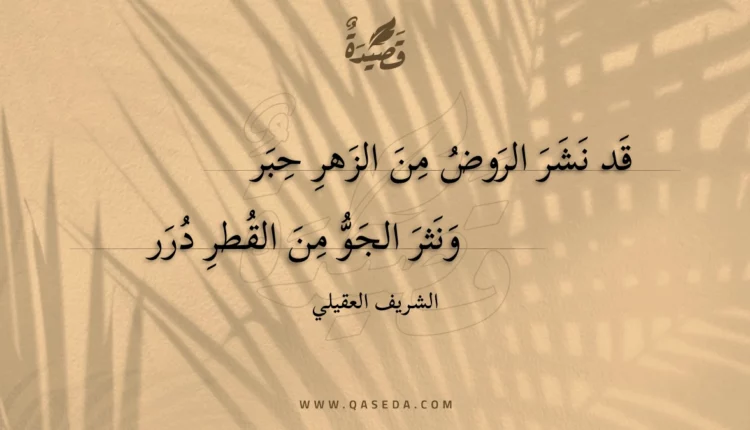 قَصِيْدَةٌ
قَد نَشَرَ الرَوضُ مِنَ الزَهرِ حِبَر
وَنَثرَ الجَوُّ مِنَ القُطرِ دُرَر
الشريف العقيلي
WWW.QASEDA.COM